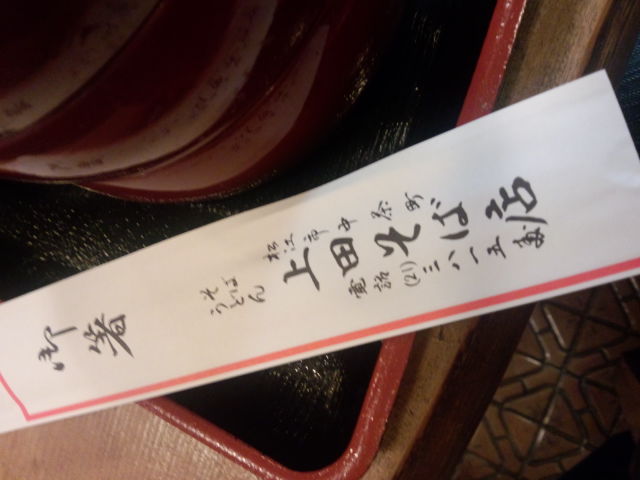 御箸
そば
うどん
松江市中茶町
上田そば店
電話(21)三八一五番